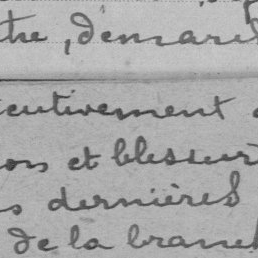 tre, demar
cutivement
ons et blessur
s dernières
de la branch